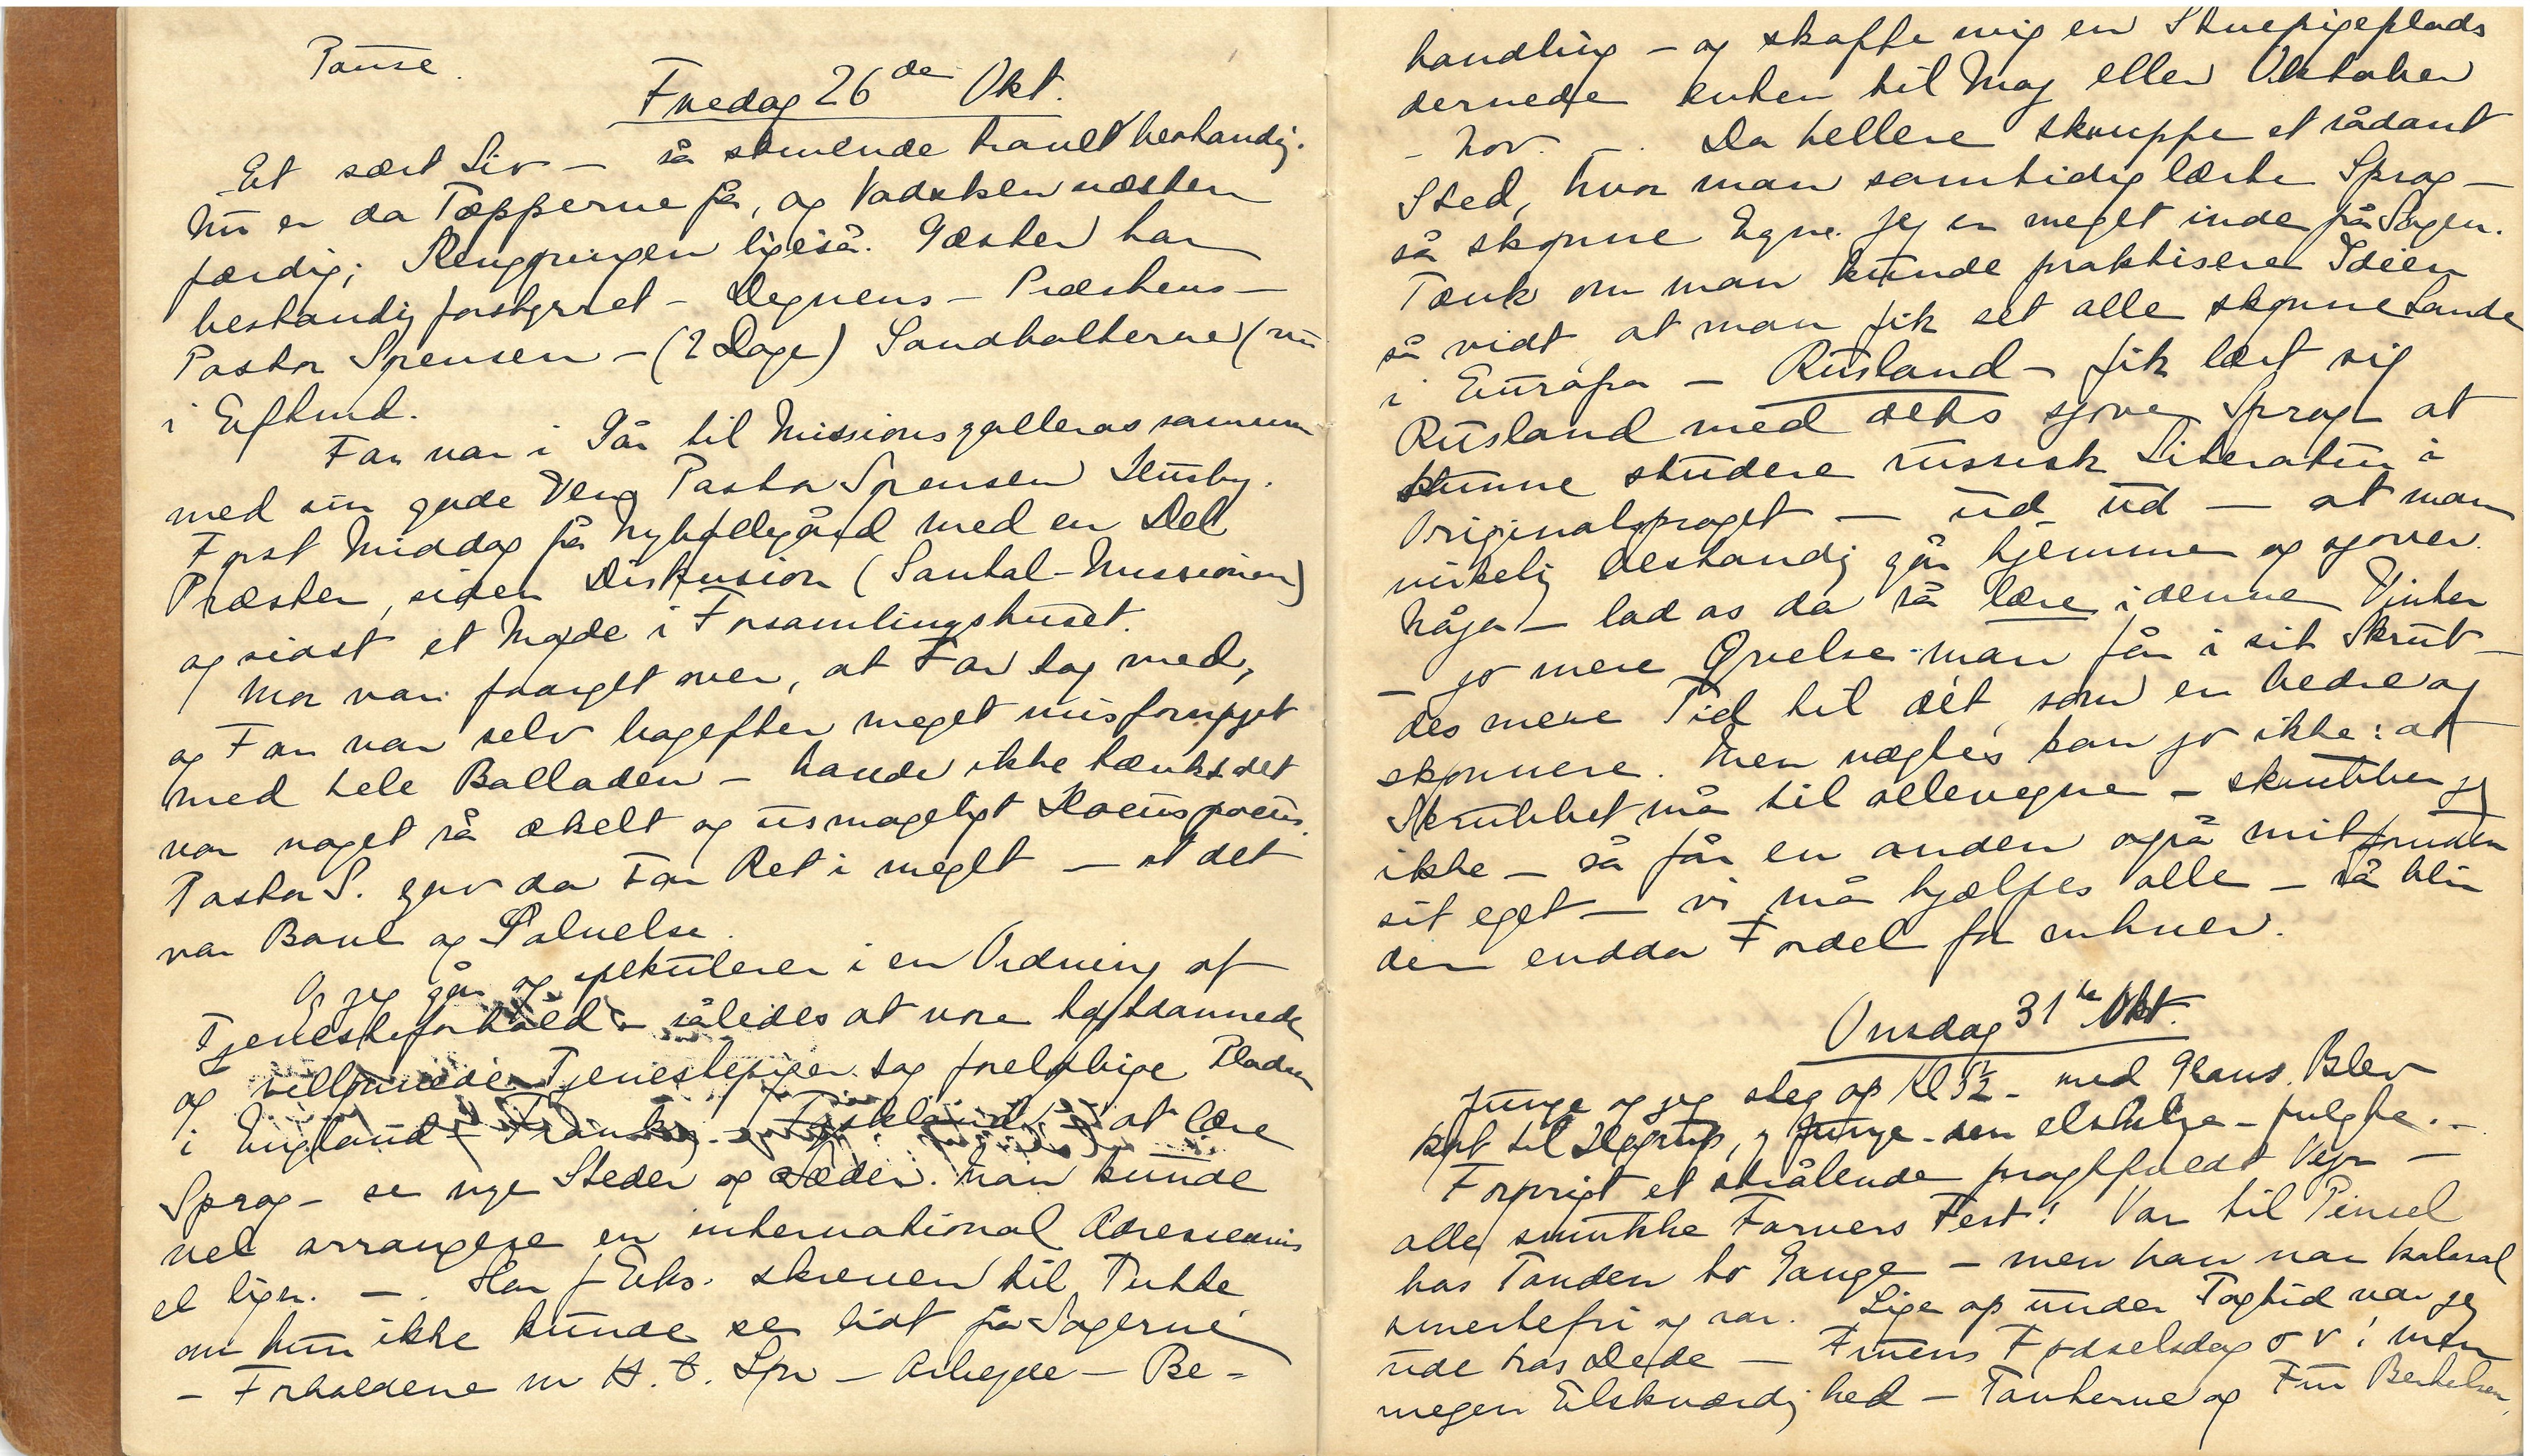 Pause.
Fredag 26de Okt.
Et sært Liv – så skruende travlt bestandig.
Nu er da Tæpperne på, og Vadsken næsten
færdig; Rengøringen ligeså. Gæster har
bestandig forstyrret – Degnens – Præstens –
Pastor Sørensen – (2 Dage) Sandholterne (nu
i Eftmd.
Far var i Går til Missionsgalleras sammen
med sin gode Ven Pastor Sørensen Husby.
Først Middag på Nybøllegård med en Del
Præster, siden Diskusion (Santal-Missionen)
og sidst et Møde i Forsamlingshuset.
Mor var foarget over, at Far tog med,
og Far var selv bagefter meget misfornøjet
med hele Balladen – havde ikke tænkt det
var noget så ækelt og usmageligt Hocuspocus.
Pastor S. gav da Far Ret i meget – at det
var Bavl og Salvelse.
Og jeg går og spekulerer i en Ordning af
Tjenesteforhold – således at vore højtdannede
og vellønnede Tjenestepiger tog foreløbige Pladser
i England – Frankrig – Tyskland – at lære
Sprog – se nye Steder og Sæder. Man kunde
vel arrangere en international Adresseavis
el lign. –. Har f Eks. skrevet til Tutte
om hun ikke kunde se lidt på Sagerne
– Forholdene m H. t. Løn – Arbejde – Be-
handling – og skaffe mig en Stuepigeplads
dernede enten til Maj eller Oktober
– Nov. –. Da hellere skruppe et sådant
Sted, hvor man samtidig lærte Sprog –
så skønne Egne. Jeg er meget inde på Sagen.
Tænk om man kunde praktisere Idéen
så vidt at man fik set alle skønne Lande
i Europa – Rusland – fik lært sig
Rusland med dets sjove Sprog at
kunne studere russisk Literatur i
Originalsproget – ud ud – at man
virkelig bestandig går hjemme og sjover.
Nåja – lad os da så lære i denne Vinter
– jo mere Øvelse man får i sit Skrub –
des mere Tid til dét, som er bedre og
skønnere. Men nægtes kan jo ikke: at
Skrubbet må til allevegne – skrubber jeg
ikke – så får en anden også mit foruden
sit eget – vi må hjælpes alle – så blir
der endda Fordel for enhver.
Onsdag 31te Okt.
Junge og jeg steg op Kl 5½ – med Glans. Blev
kørt til Højrup, og Junge – den elskelige – fulgte. –
Forøvrigt et strålende pragtfuldt Vejr –
alle smukke Farvers Fest! Var til Pinsel
hos Tanden to Gange – men han var kolosal
smertefri og rar. Lige op under Togtid var jeg
ude hos Dede – Fruens Fødselsdag o v! men
megen Elskværdighed – Tanterne og Fru Bertelsen,